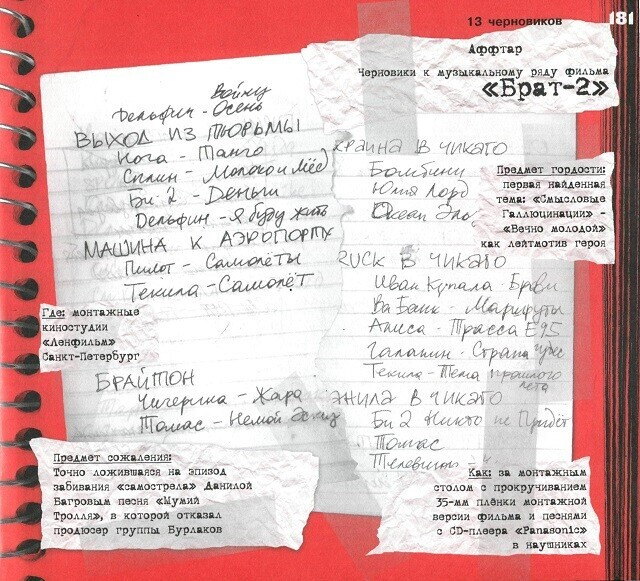 13 черновиков
181
Аффтар
Черновики к музыкальному ряду фильма
«Брат-2»
Войну
Дельфин - Осень
ВЫХОД ИЗ ТЮРЬМЫ
Нога - Танго
Сплин - Молоко и Мёд
Би 2 - Деньги
Дельфин - Я буду жить
МАШИНА К АЭРОПОРТУ
Пилот - Самолёты
Текила - Самолёт
БРАЙТОН
Чичерина - Жара
Томас - Немой Эскиз
КРАИНА В ЧИКАГО
Бомбини
Юлия Лорд
Океан Эль
RUCK В ЧИКАГО
Иван Купала - Брови
Ва Банк - Маршруты
Алиса - Трасса Е95
Галанин - Страна чудес
Текила - Тема прошлого
лета
ЖИЛА В ЧИКАГО
Би 2 Никто не Придёт
Томас
Телевизор
Предмет гордости:
первая найденная
тема: «Смысловые
Галлюцинации» -
«Вечно молодой»
как лейтмотив героя
Где: монтажные
киностудии
«Ленфильм»
Санкт-Петербург
Предмет сожаления:
Точно ложившаяся на эпизод
забивания «самострела» Данилой
Багровым песня «Мумий
Тролля», в которой отказал
продюсер группы Бурлаков
Как: за монтажным
столом с прокручиванием
35-мм плёнки монтажной
версии фильма и песнями
с CD-плеера «Panasonic»
в наушниках